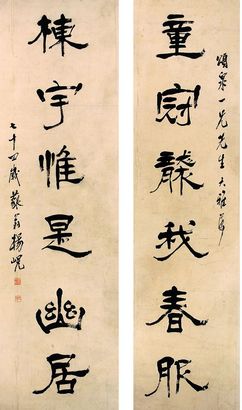 頌一兄先生大雅屬
童冠襲我春服
棟宇惟是幽居
七十四歲藐翁楊峴